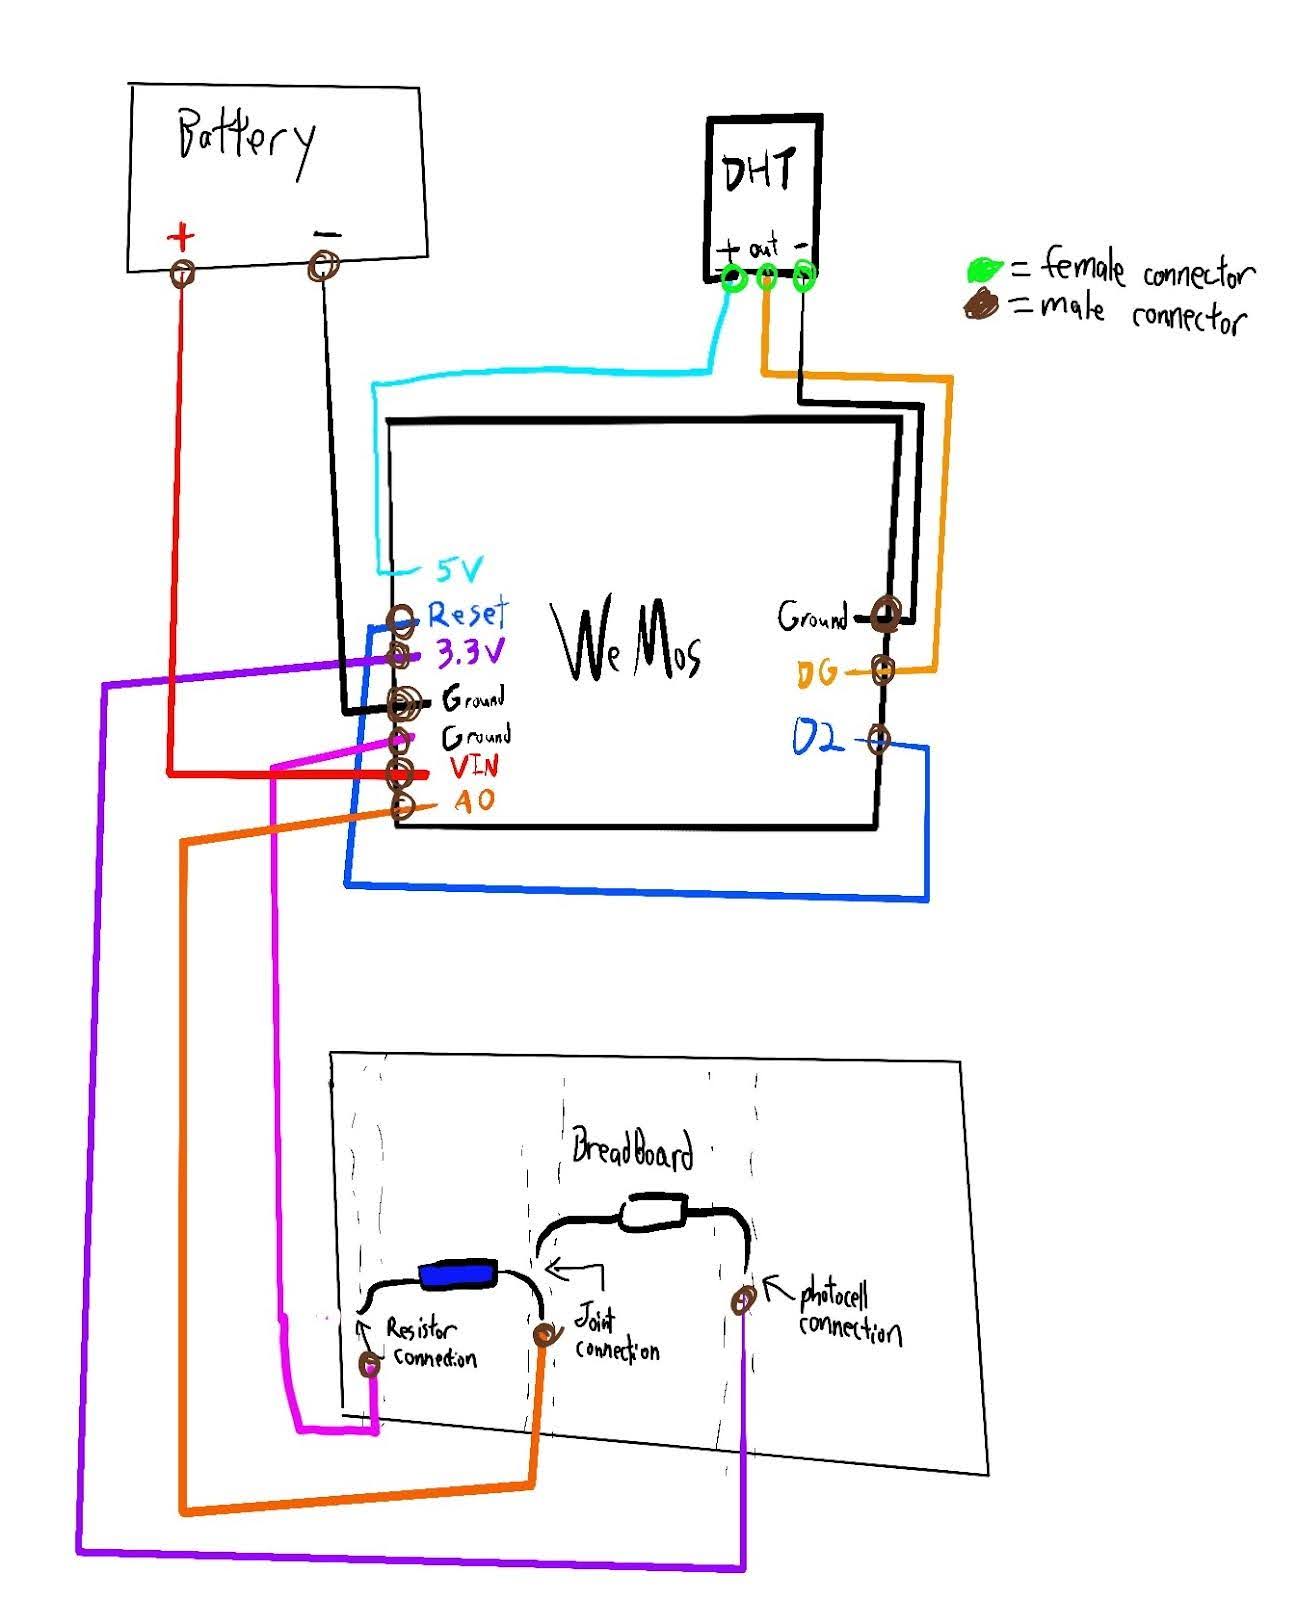 Battery
+ -
DHT
+ out -
= female connector
= male connector
5V
Reset
3.3V
Ground
Ground
VIN
A0
WeMos
Ground
DG
D2
BreadBoard
Resistor
connection
Joint
connection
photocell
connection